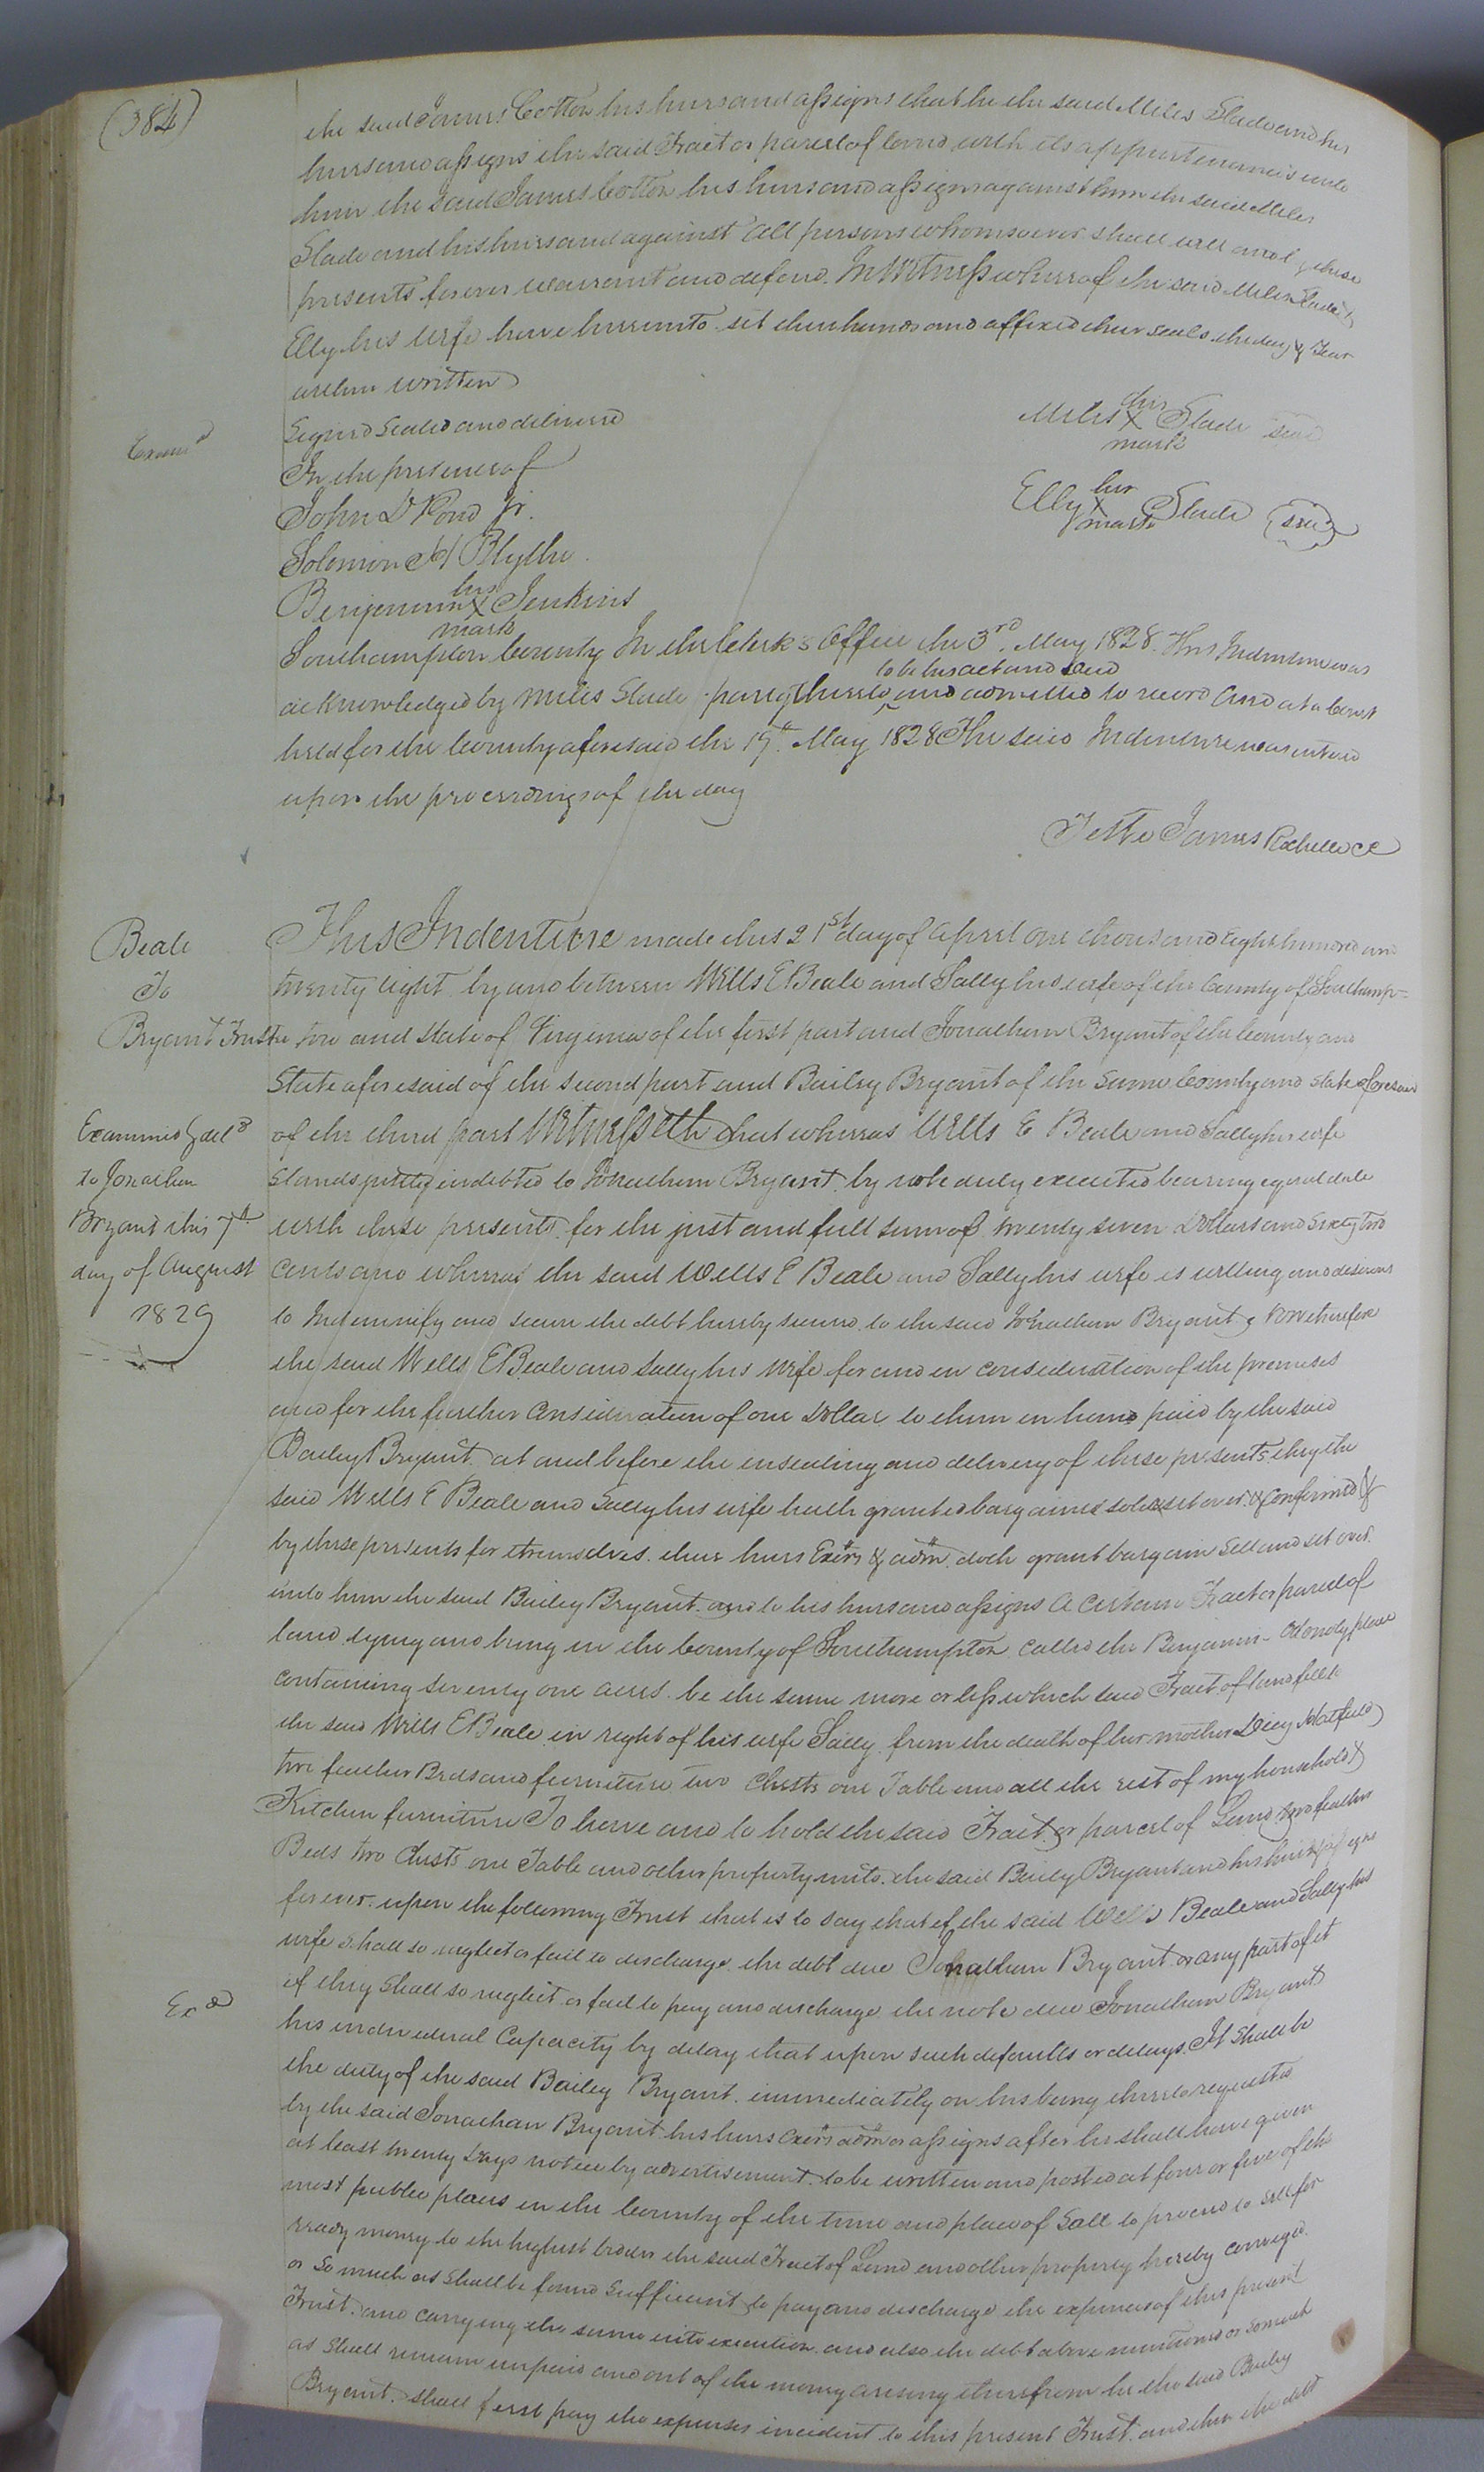 (384)
the said James Cotton his heirs and assigns that he the said Miles Slade and his
heirs and assigns the said Tract or parcel of land with its appurtenances unto
him the said James Cotton his heirs and assigns against him the said Miles
Slade and his heirs and against all persons whomsoever shall will and by these
presents forever warrant and defend. In Witness whereof the said Miles Slade &
Elly his wife have hereunto set their hands and affixed their seals the day & Year
within written
Signed Sealed and delivered
In the presence of
John D Pond Jr.
Solomon H Blythe
Benjamin his X mark Jenkins
Miles his X mark Slade seal
Elly her X mark Slade (seal)
Exam d
Southampton County In the Clerk's Office the 3rd May 1828. This Indenture was
to be his act and deed
acknowledged by Miles Slade party thereto ^ and admitted to record And at a Court
held for the County aforesaid the 19th May 1828 The said Indenture was entered
upon the proceedings of the day
Teste James Rochelle CC
Beale
To
Bryant Trustee
Examined & deld
to Jonathan
Bryant this 7th
day of August
1829
This Indenture made this 21st day of April one thousand eight hundred and
twenty eight by and between Wells E Beale and Sally his wife of the County of Southamp-
ton and State of Virginia of the first part and Jonathan Bryant of the County and
State aforesaid of the second part and Bailey Bryant of the same County and State aforesaid
of the third part Witnesseth that whereas Wells E Beale and Sally his wife
Stands justly indebted to Jonathan Bryant by note duly executed bearing equal date
with these presents for the just and full sum of twenty seven Dollars and Sixty two
Cents and whereas the said Wells E Beale and Sally his wife is willing and desirous
to Indemnify and secure the debt hereby secured to the said Jonathan Bryant & Now therefore
the said Wells E Beale and Sally his wife for and in consideration of the premises
and for the further Consideration of one Dollar to them in hand paid by the said
Bailey Bryant at and before the ensealing and delivery of these presents they the
said Wells E Beale and Sally his wife hath granted bargained sold & set over & Confirmed &
by these presents for themselves their heirs Exors & adm doth grant bargain Sell and set over
unto him the said Bailey Bryant and to his heirs and assigns a Certain Tract or parcel of
land lying and being in the County of Southampton called the Benjamin place
Containing seventy one acres be the same more or less which said Tract of land fell to
the said Wells E Beale in right of his wife Sally from the death of her mother Dicey Hatfield
two feather Beds and furniture two Chests one Table and all the rest of my household &
Kitchen furniture To have and to hold the said Tract or parcel of Land two feather
Beds two Chests one Table and other property unto the said Bailey Bryant and his heirs & assigns
forever upon the following Trust that is to say that if the said Wells Beale and Sally his
wife shall so neglect or fail to discharge the debt due Jonathan Bryant or any part of it
if they shall so neglect or fail to pay and discharge the note due Jonathan Bryant
Exd
his individual Capacity by delay that upon such defaults or delays It Shall be
the duty of the said Bailey Bryant immediately on his being thereto requested
by the said Jonathan Bryant his heirs exors adm or assigns after he shall have given
at least twenty Days notice by advertisement to be written and posted at four or five of the
most public places in the County of the time and place of Sale to proceed to Sell for
ready money to the highest bidder the said Tract of Land and other property hereby conveyed
or So much as Shall be found Sufficient to pay and discharge the expenses of this present
Trust and carrying the same into execution and also the debt above mentioned or so much
as Shall remain unpaid and out of the money arising therefrom he the said Bailey
Bryant shall first pay the expenses incident to this present Trust and then the debt